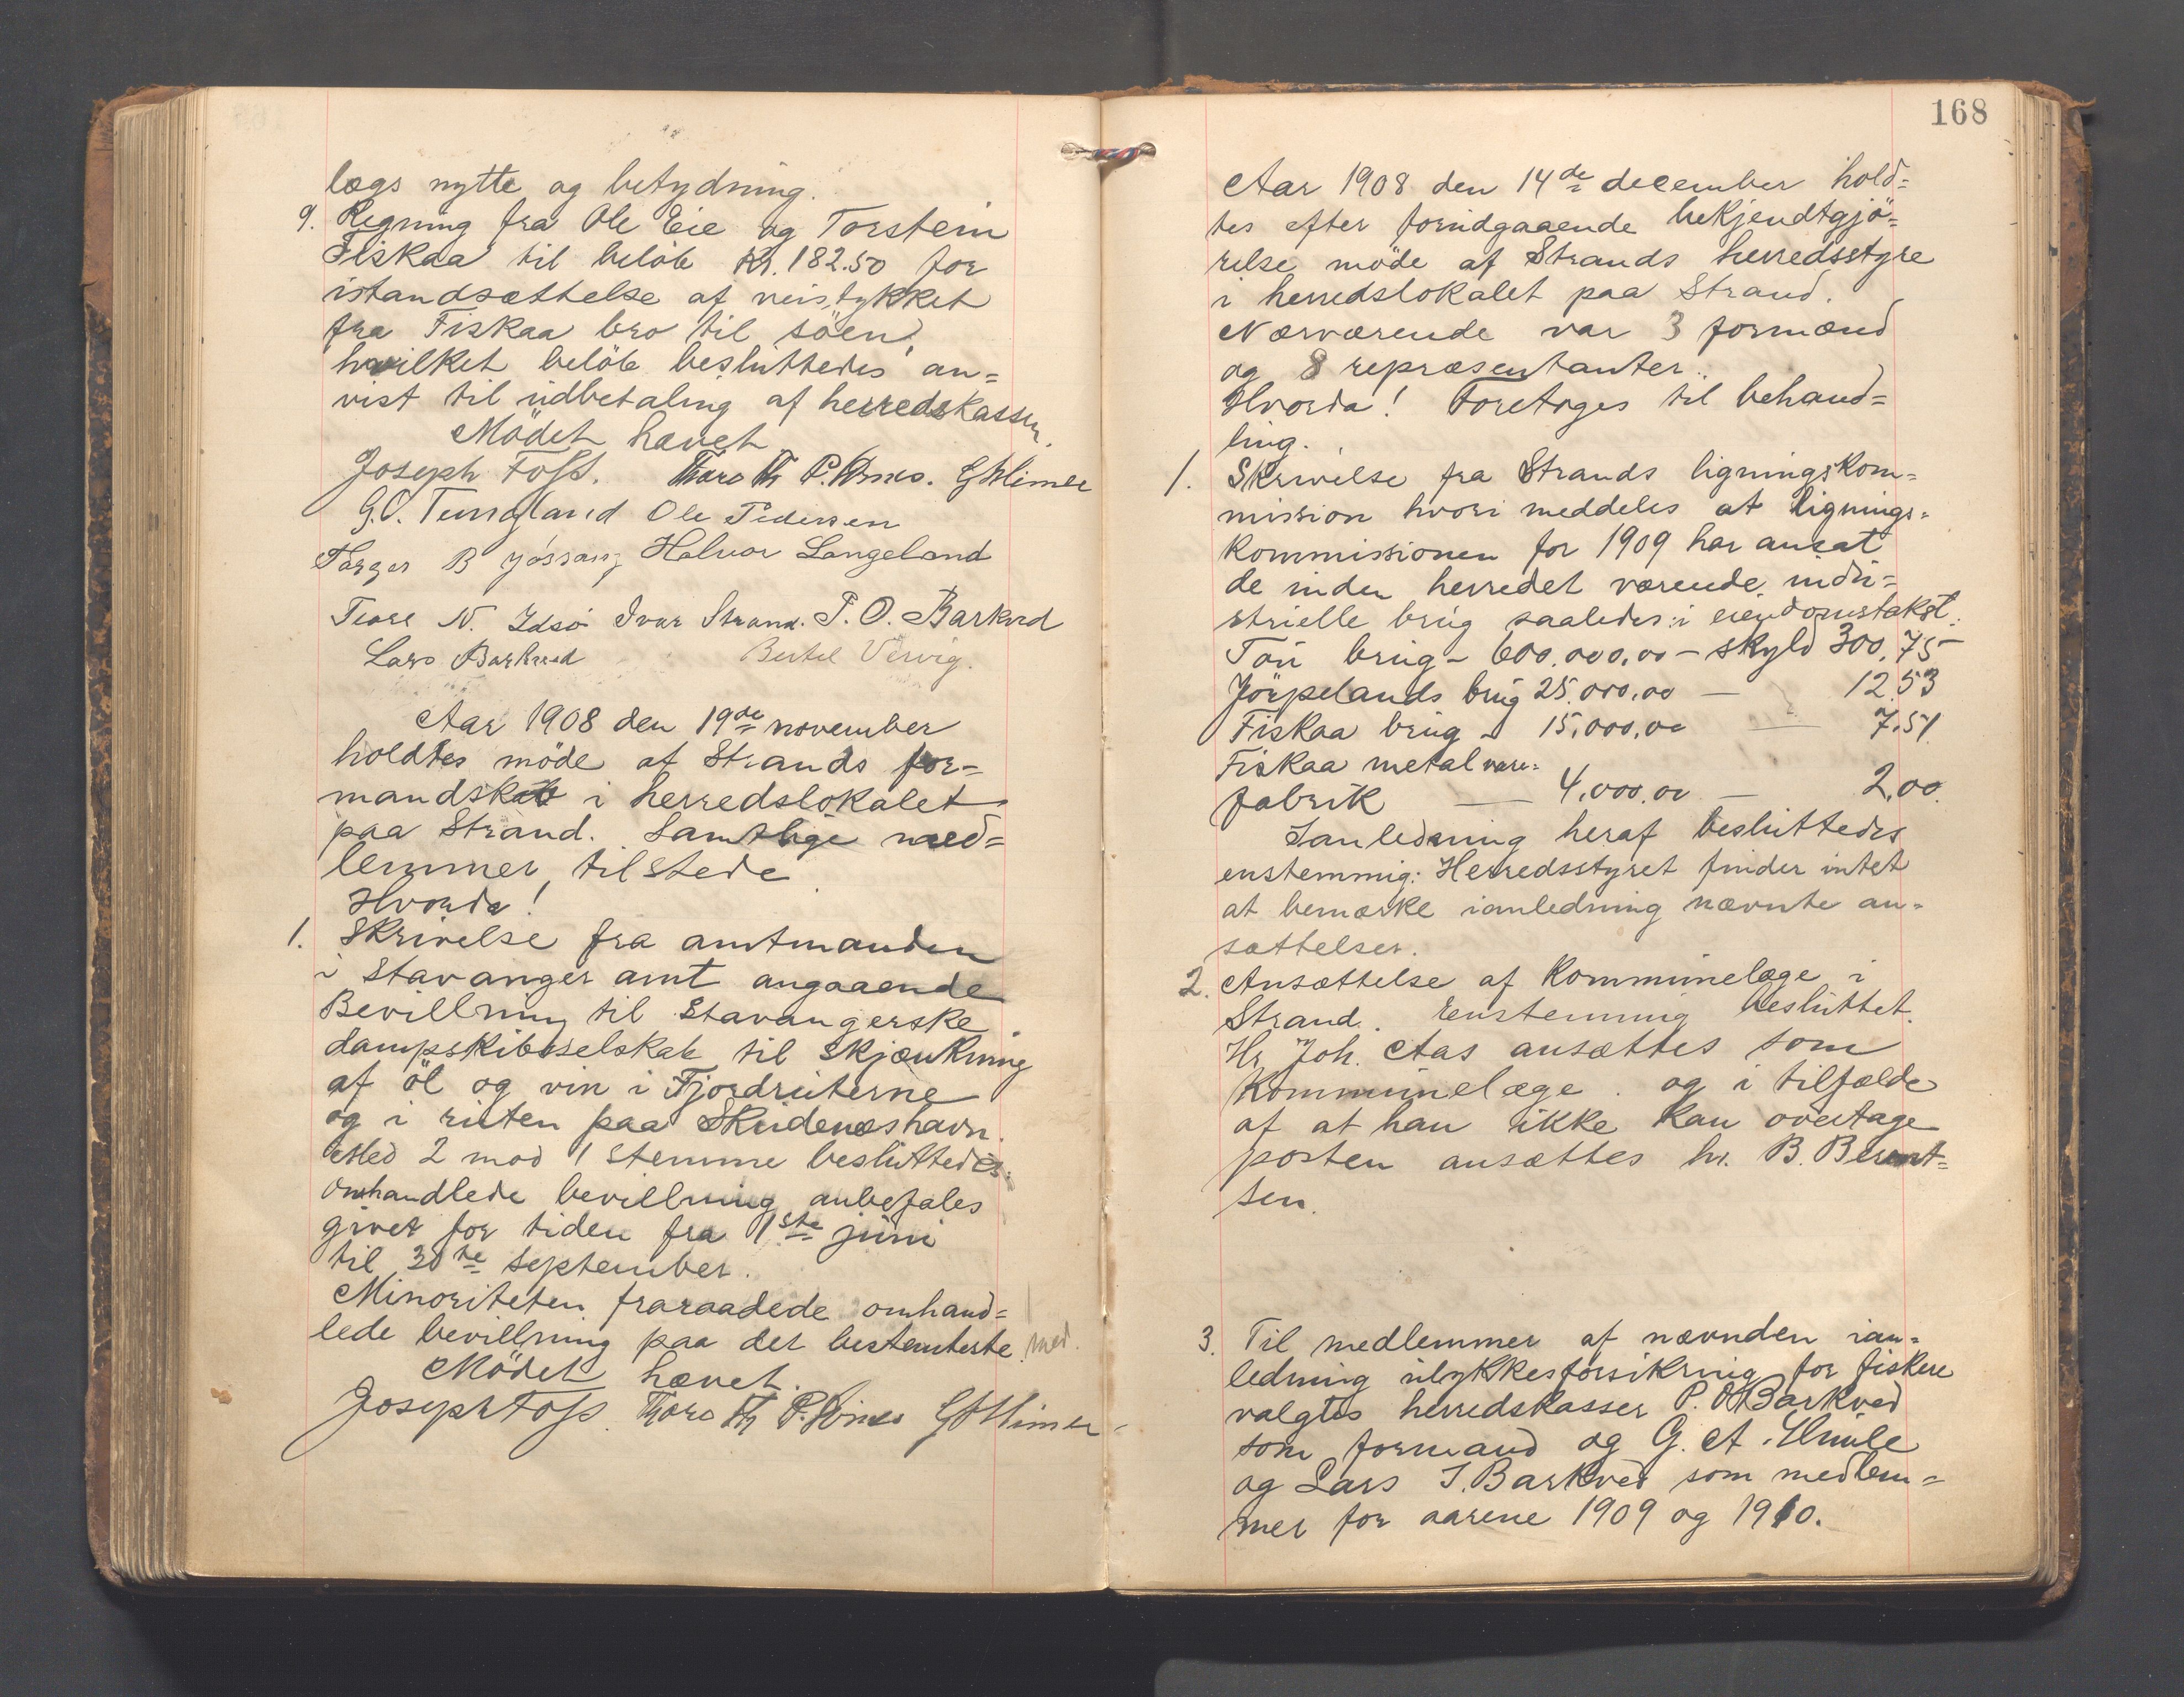 lægs nytte og betydning.
9. Regning fra Ole Eie og Torstein
Fiskaa til beløb kr. 182.50 for
istandsættelse af veistykket
fra Fiskaa bro til søen,
hvilket beløb besluttedes an=
vist til udbetaling af herredskassen.
Mødet hævet
Joseph Foss. Thore Th P. G Himle
G. O. Tungland Ole Pedersen
B Jøssang Halvor Langeland
Tore N. Idsø Ivar Strand. P. O. Barkved
Lars Barkved Bertel Vervig.
Aar 1908 den 19de november
holdtes møde af Strands for=
mandskab i herredslokalet
paa Strand. Samtlige med=
lemmer tilstede.
Hvorda!
1. Skrivelse fra amtmanden
i Stavanger amt angaaende
Bevillning til Stavangerske
dampskibsselskab til skjænkning
af øl og vin i Fjordruterne
og i ruten paa Skudenæshavn.
Med 2 mod 1 stemme besluttedes:
Omhandlede bevillning anbefales
givet for tiden fra 1ste juni
til 30te september.
Minoriteten fraraadede omhand=
lede bevillning paa det bestemteste.
Mødet hævet.
Joseph Foss. Thore Th P. G Himle
168
Aar 1908 den 14de december hold=
tes efter forudgaaende bekjendtgjø=
relse møde af Strands herredsstyre
i herredslokalet paa Strand.
Nærværende var 3 formænd
og 8 repræsentanter.
Hvorda! Foretoges til behand=
ling.
1. Skrivelse fra Strands ligningskom=
mission hvori meddeles at lignings=
kommissionen for 1909 har ansat
de inden herredet værende indu=
strielle brug saaledes: i eiendomstakst.
Tau brug - 600.000,00 - skyld 300,75
Jørpelands brug 25.000,00 — 12.53
Fiskaa brug - 15.000,00 — 7.51
Fiskaa metalvare=
fabrik — 4.000,00 — 2,00.
Ianledning heraf besluttedes
enstemmig: Herredsstyret finder intet
at bemærke ianledning nævnte an=
sættelser.
2. Ansættelse af kommunelæge i
Strand. Enstemmig besluttet.
Hr Joh. Aas ansættes som
kommunelæge. og i tilfælde
af at han ikke kan overtage
posten ansættes hr. B. Bernt=
sen.
3. Til medlemmer af nævnden ian=
ledning ulykkesforsikring for fiskere
valgtes herredskasser P. O. Barkved
som formand og G. A. Himle
og Lars J. Barkved som medlem=
mer for aarene 1909 og 1910.